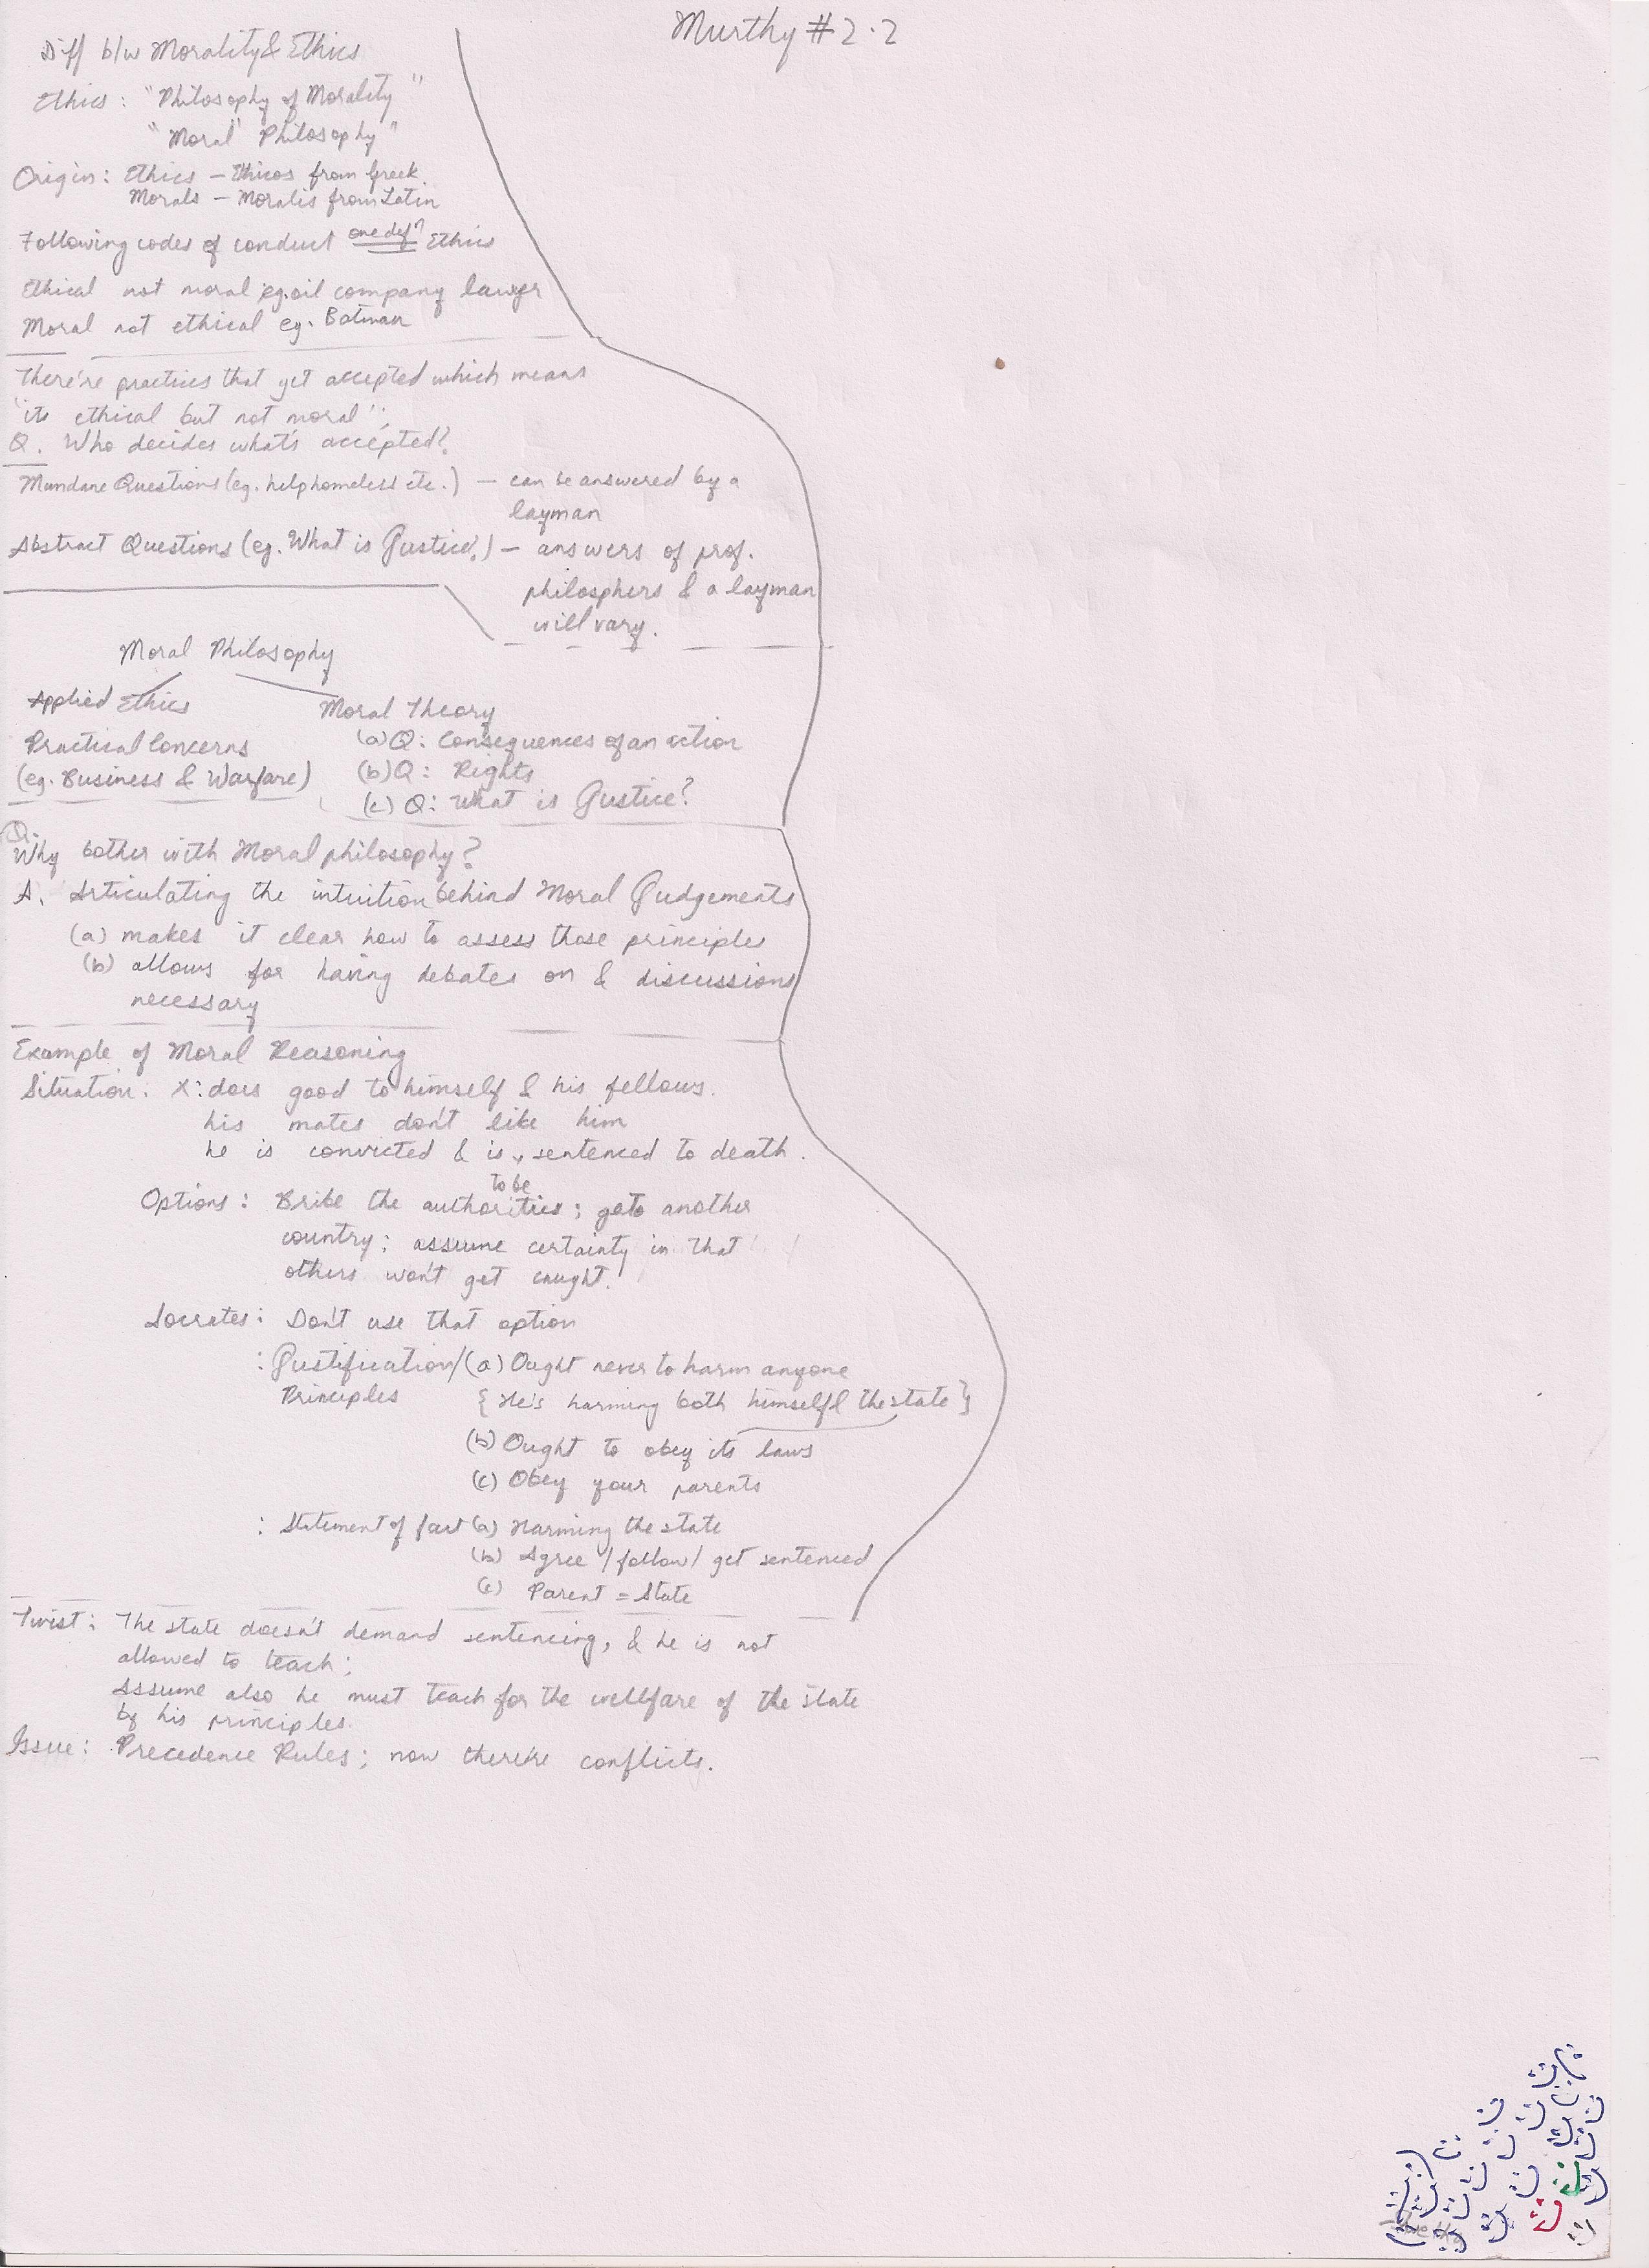 Murthy #2.2
Diff b/w Morality & Ethics
Ethics : "Philosophy of Morality"
"Moral Philosophy"
Origin: Ethics - Ethicos from Greek.
Morals - Moralis from Latin
Following codes of conduct one defn Ethics
Ethical not moral eg. oil company lawyer
Moral not ethical eg. Batman
There're practices that get accepted which means
"its ethical but not moral";
Q. Who decides what's accepted?
Mundane Questions (eg. help homeless etc.) - can be answered by a
layman
Abstract Questions (eg. What is Justice?) - answers of prof.
philosphers & a layman
will vary.
Moral Philosophy
Applied Ethics
Moral Theory
Practical Concerns
(a) Q: Consequences of an action
(eg. Business & Warfare)
(b) Q: Rights
(c) Q: What is Justice?
Q
Why bother with Moral philosophy?
A. Articulating the intuition behind Moral Judgements
(a) makes it clear how to assess those principles
(b) allows for having debates on & discussions
necessary
Example of Moral Reasoning
Situation: X: does good to himself & his fellows.
his mates don't like him
he is convicted & is to be sentenced to death.
Options: Bribe the authorities; goto another
country; assume certainty in that
others won't get caught.
Socrates: Don't use that option
: Justification/ (a) Ought never to harm anyone
Principles {He's harming both himself & the state}
(b) Ought to obey its laws
(c) Obey your parents
: Statement of fact (a) Harming the state
(b) Agree /follow/ get sentenced
(c) Parent = State
Twist: The state doesn't demand sentencing, & he is not
allowed to teach;
Assume also he must teach for the wellfare of the state
by his principles.
Issue: Precedence Rules; now there're conflicts.